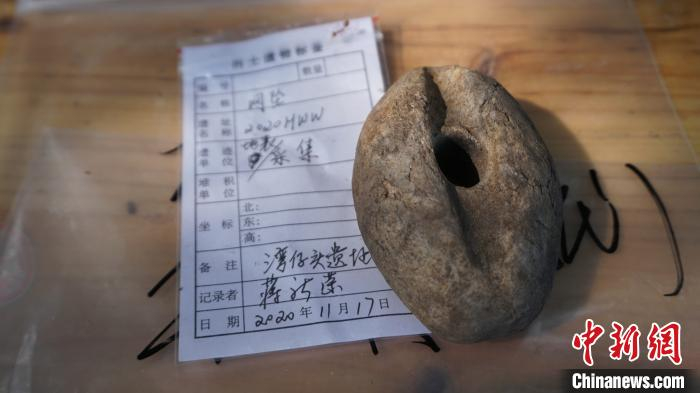 出土遗物标签
编号 数量
名称 网坠
遗址名称 2020HWW
遗迹单位 地表采集
堆积单位
坐标 北：
东：
高：
备注 湾仔头遗址
记录者
日期 2020年11月17日
中新网
Chinanews.com